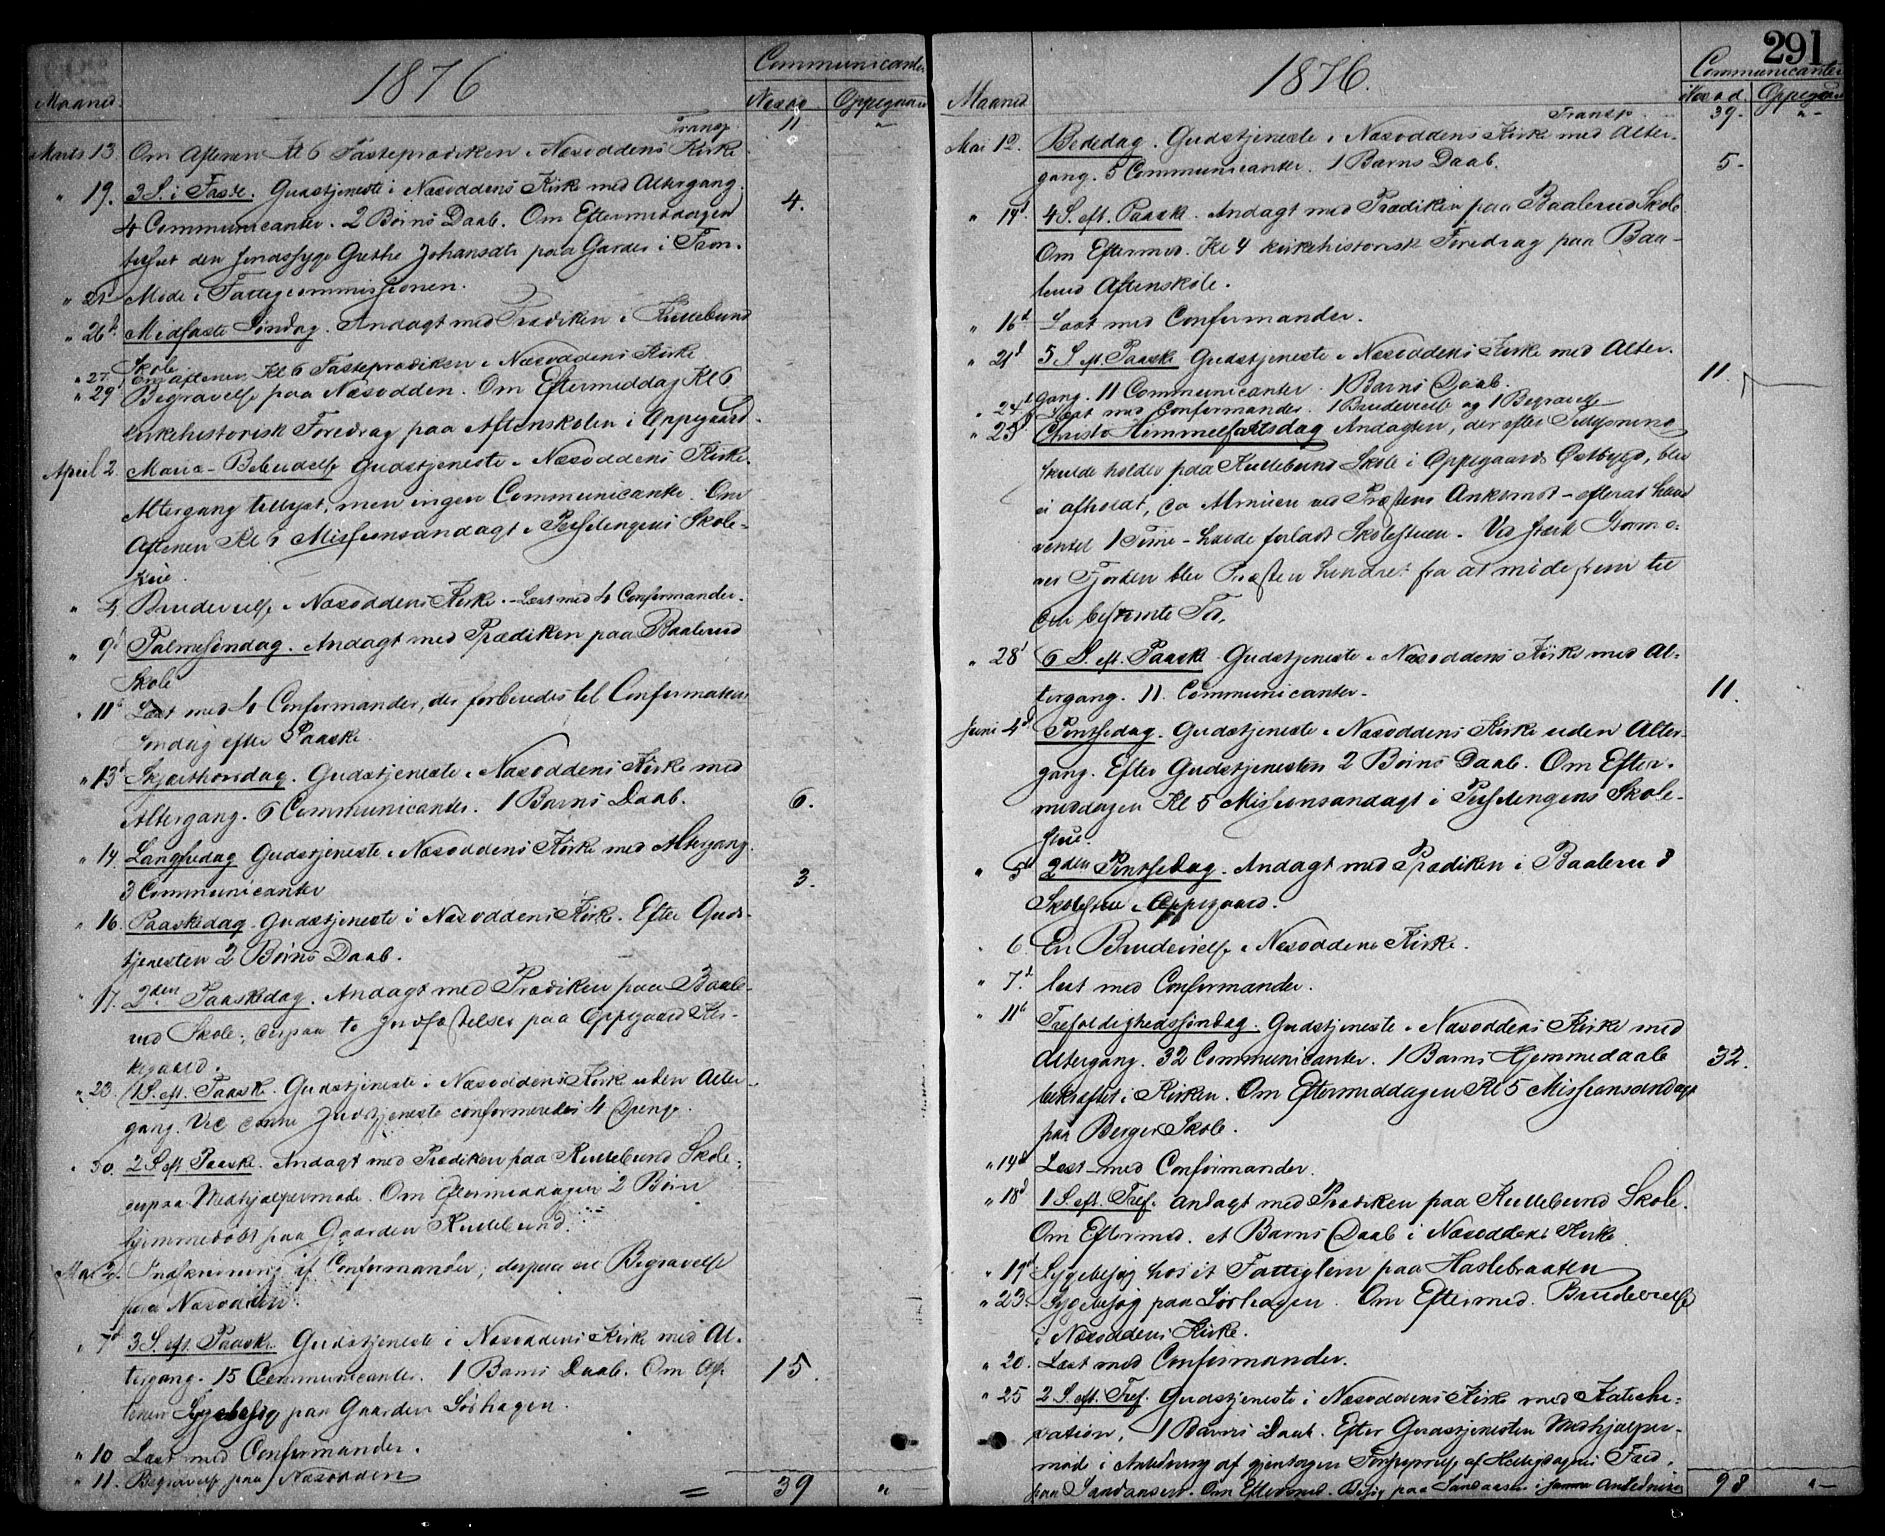 1876
Communicanter
Maaned
Nesod
Oppegaard
Transp 11 "
Marts 13. Om Aftenen Kl 6 Fasteprædiken i Næsoddens Kirke
" 19. 3 S. i Faste. Gudstjeneste i Næsoddens Kirke med Altergang.
4 Communicanter. 2 Børns Daab. Om Eftermiddagen 4.
den sindssyge Grethe Johansdtr paa Garder i
" 21 Møde i Fattigcommissionen.
" 26d. Midfaste Søndag. Andagt med Prædiken i Kullebund
Skole
" 27. Om Aftenen Kl 6 Fasteprædiken i Næsoddens Kirke
" 29 Begravelse paa Næsodden. Om Eftermiddag Kl 6
kirkehistorisk Foredrag paa Aftenskolen i Oppegaard.
April 2. Maria-Bebudelse Gudstjeneste i Næsoddens Kirke.
Altergang tillyst, men ingen Communicanter. Om
Aftenen Kl 6 Missionsandagt i Teisdengens Skole-
stue.
" 4 Brudevielse i Næsoddens Kirke. - Læst med 4 Confirmander.
" 9d Palmesøndag. Andagt med Prædiken paa Baalerud
Skole
" 11t Læst med 4 Confirmander, der forberedes til Confirmation
Søndag efter Paaske.
" 13d Skjærthorsdag. Gudstjeneste i Næsoddens Kirke med
Altergang. 6 Communicanter. 1 Barns Daab. 6.
" 14. Langfredag Gudstjeneste i Næsoddens Kirke med Altergang.
3 Communicanter 3.
" 16. Paaskedag. Gudstjeneste i Næsoddens Kirke. Efter Guds-
tjenesten 2 Børns Daab.
" 17. 2den Paaskedag. Andagt med Prædiken paa Baale-
rud Skole; derpaa to Jordfæstelser paa Oppegaard Kir-
kegaard.
" 23. 1 S. eft. Paaske. Gudstjeneste i Næsoddens Kirke uden Alter-
gang. Ved denne Gudstjeneste confirmeredes 4 Drenge.
" 30. 2 S. eft. Paaske. Andagt med Prædiken paa Kullebund Skole;
derpaa Medhjælpermøde. Om Eftermiddagen 2 Børn
hjemmedøbt paa Gaarden Kullebund.
Mai 2. Indskrivning af Confirmander; derpaa en Begravelse
paa Næsodden.
" 7d 3 S. eft. Paaske. Gudstjeneste i Næsoddens Kirke med Al-
tergang. 15 Communicanter. 1 Barns Daab. Om Af- 15.
tenen Sygebesøg paa Gaarden Sørhagen.
" 10 Læst med Confirmander.
" 11. Begravelse paa Næsodden
= 39 "
291
1876.
Communicanter
Maaned
Nesod.
Oppegaard
Transp. 39. "
Mai 12. Bededag. Gudstjeneste i Næsoddens Kirke med Alter-
gang. 5 Communicanter. 1 Barns Daab. 5.
" 14d 4 S. eft. Paaske. Andagt med Prædiken paa Baalerud Skole
Om Eftermid. Kl 4 kirkehistorisk Foredrag paa Baa-
lerud Aftenskole.
" 16d Læst med Confirmander.
" 21d 5 S. eft. Paaske Gudstjeneste i Næsoddens Kirke med Alter-
gang. 11 Communicanter. 1 Barns Daab. 11.
" 24d Læst med Confirmander. 1 Brudevielse og 1 Begravelse
" 25 Christi Himmelfartsdag Andagten, der efter Tillysning
skulde holdes paa Kullebund Skole i Oppegaards Østbygd, blev
ei afholdt, da Almuen ved Præstens Ankomst - efterat have
ventet 1 Time - havde forladt Skolestuen. Ved stærk Storm o-
ver Fjorden blev Præsten hindret fra at møde frem til
den bestemte Tid.
" 28d 6 S. eft. Paaske Gudstjeneste i Næsoddens Kirke med Al-
tergang. 11. Communicanter. 11.
Juni 4d Pintsedag. Gudstjeneste i Næsoddens Kirke uden Alter-
gang. Efter Gudstjenesten 2 Børns Daab. Om Efter-
middagen Kl 5 Missionsandagt i Teisdengens Skole-
stue.
" 5d 2den Pintsedag. Andagt med Prædiken i Baalerud
Skolestue i Oppegaard.
" 6 En Brudevielse i Næsoddens Kirke.
" 7d læst med Confirmander.
" 11t Trefoldighedssøndag. Gudstjeneste i Næsoddens Kirke med
Altergang. 32 Communicanter. 1 Barns Hjemmedaab 32.
bekræftet i Kirken. Om Eftermiddagen Kl 5 Missionsandagt
paa Berger Skole.
" 14d Læst med Confirmander.
" 18d 1 S. eft. Tref. Andagt med Prædiken paa Kullebund Skole.
Om Eftermid. et Barns Daab i Næsoddens Kirke.
" 19d Sygebesøg hos et Fattiglem paa Haslebraaten
" 23. Sygebesøg paa Sørhagen. Om Eftermid. Brudevielse
i Næsoddens Kirke.
" 20. Læst med Confirmander.
" 25 2 S. eft. Tref. Gudstjeneste i Næsoddens Kirke med Kateche-
sation. 1 Barns Daab. Efter Gudstjenesten Medhjælper-
møde i Anledning af gjentagen Forstyrrelse af Helligdagens Fred,
paa Sandaasen. Om Eftermid. Besøg paa Sandaasen i samme Anledning
98 "